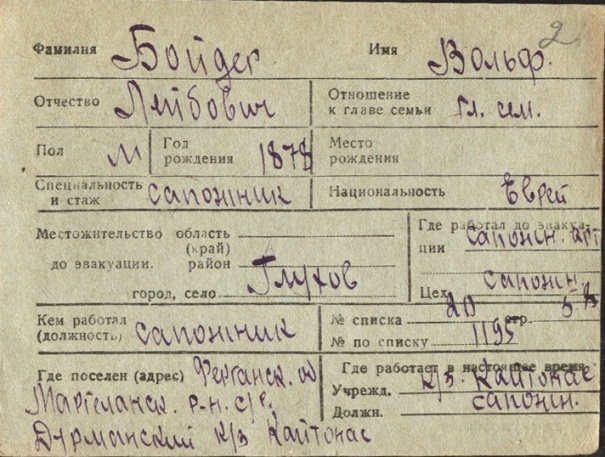 2
Фамилия Бойдек Имя Вольф.
Отчество Лейбович Отношение к главе семьи гл. сем.
Пол М Год рождения 1878 Место рождения
Специальность и стаж сапожник Национальность Еврей
Местожительство область (край) Где работал до эвакуации сапожн. арт
до эвакуации. район
город, село Глухов Цех сапожн.
Кем работал (должность) сапожник № списка 20 стр. 5
№ по списку 1195
Где поселен (адрес) Ферганск. об Где работает в настоящее время
Маргеланск. р-н. с/с. Учрежд. к/з. Кайтонас
Дурманский к/з Кайтонас Должн. сапожн.